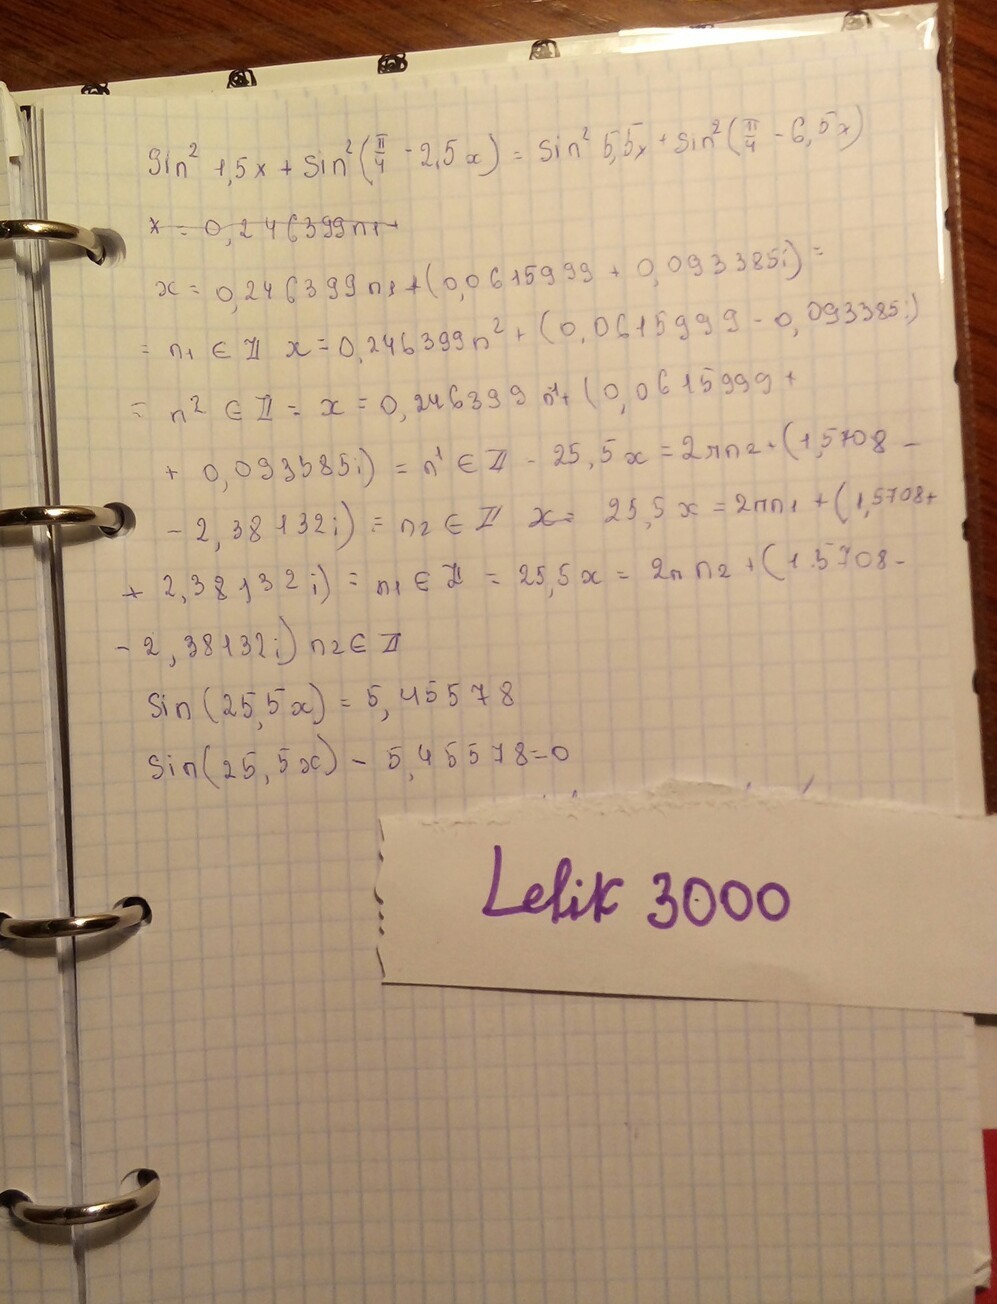 Sin² 1,5x + Sin²(π/4 - 2,5x) = Sin² 5,5x + Sin²(π/4 - 6,5x)
x = 0,246399n1
x = 0,246399n1 + (0,0615999 + 0,093385i) =
= n1 ∈ Z x = 0,246399n² + (0,0615999 - 0,093385i)
= n² ∈ Z = x = 0,246399 n¹ + (0,0615999 +
+ 0,093385i) = n¹ ∈ Z - 25,5x = 2πn2 + (1,5708 -
- 2,38132i) = n2 ∈ Z x = 25,5x = 2πn1 + (1,5708 +
+ 2,38132i) = n1 ∈ Z = 25,5x = 2π n2 + (1.5708 -
- 2,38132i) n2 ∈ Z
Sin(25,5x) = 5,45578
Sin(25,5x) - 5,45578 = 0
Lelik 3000